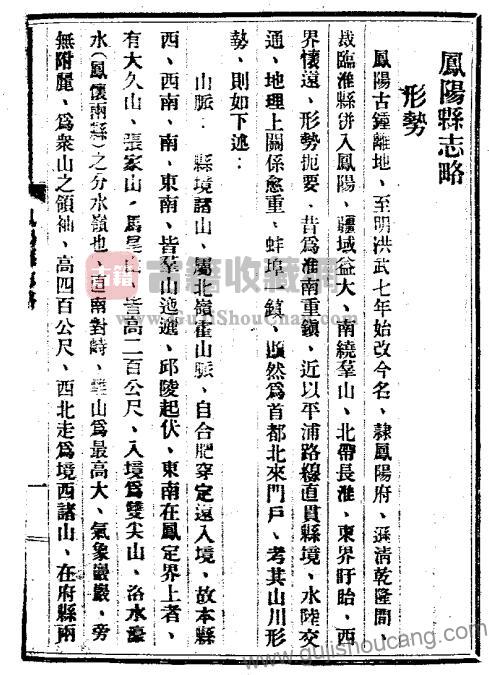 鳳陽縣志略
形勢
鳳陽古鍾離地、至明洪武七年始改今名、隸鳳陽府、滿清乾隆間、
裁臨淮縣併入鳳陽、疆域益大、南繞羣山、北帶長淮、東界盱眙、西
界懷遠、形勢扼要、昔爲淮南重鎭、近以平浦路線直貫縣境、水陸交
通、地理上關係愈重、蚌埠一鎭、顯然爲首都北來門戶、考其山川形
勢、則如下述：
山脈：縣境諸山、屬北嶺霍山脈、自合肥穿定遠入境、故本縣
西、西南、南、東南、皆羣山迤邐、邱陵起伏、東南在鳳定界上者、
有大久山、張家山、馬尾山、皆高二百公尺、入境爲雙尖山、洛水濠
水（鳳懷兩縣）之分水嶺也、直南對峙、山爲最高大、氣象巖巖、旁
無附麗、爲衆山之領袖、高四百公尺、西北走爲境西諸山、在府縣兩
一
古籍
古籍收藏网
www.GuJiShouCang.com
www.gujishoucang.com